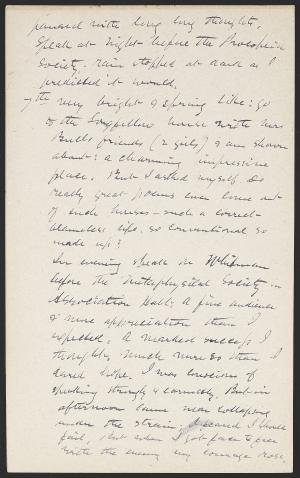 passed with long long thoughts.
Speak at night before the Procopeia
Society. Rain stopped at dark as I
predicted it would.
7th very bright & spring like: go
to the Longfellow house with Mrs
Bulls friends (2 girls) & am shown
about: a charming impressive
place. But I asked myself, Do
really great poems ever come out
of such houses – such a correct
blameless life, so conventional so
made up?
In evening speak on Whitman
before the Metaphysical Society in
Association Hall: A fine audience
& more appreciation than I
expected. A marked success I
thought, much more so than I
dared hope. I was conscious of
speaking strongly & earnestly. But in
afternoon came near collapsing
under the strain; I feared I should
fail, but when I got face to face
with the enemy my courage rose.